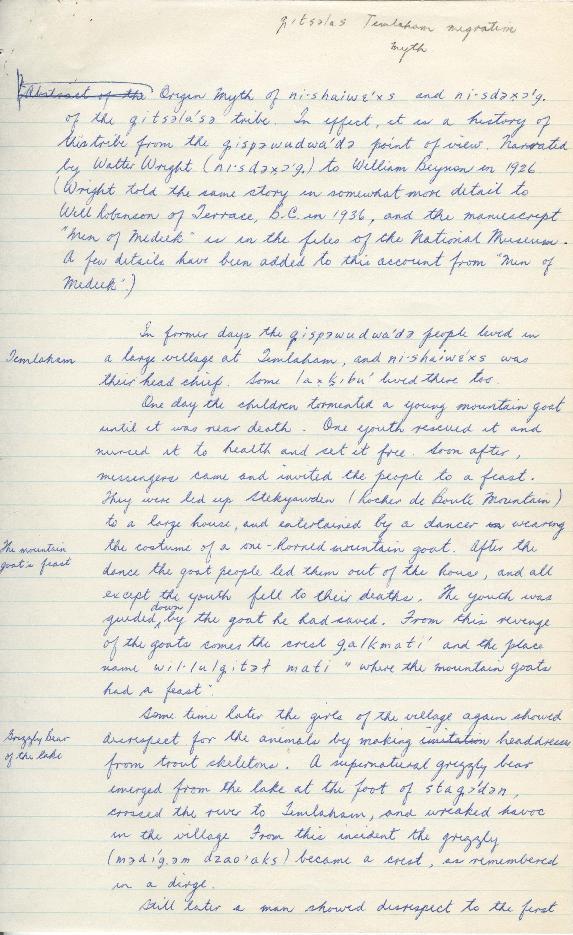 gitsəlas Temlaham migration
myth
Abstract of the Origin Myth of ni·shaiwɛ'xs and ni·sdəxə'g.
of the gitsəla'sə tribe. In effect, it is a history of
this tribe from the gispəwudwa'də point of view. Narrated
by Walter Wright (ni·sdəxə'g.) to William Beynon in 1926
(Wright told the same story in somewhat more detail to
Will Robinson of Terrace, B.C. in 1936, and the manuscript
"Men of Medeek" is in the files of the National Museum.
A few details have been added to this account from "Men of
Medeek".)
In former days the gispəwudwa'də people lived in
Temlaham a large village at Temlaham, and ni·shaiwɛ'xs was
their head chief. Some laxḵibu' lived there too.
One day the children tormented a young mountain goat
until it was near death. One youth rescued it and
nursed it to health and set it free. Soon after,
messengers came and invited the people to a feast.
They were led up Stekyawden (Rocher de Boule Mountain)
to a large house, and entertained by a dancer in wearing
The mountain goat's feast the costume of a one-horned mountain goat. After the
dance the goat people led them out of the house, and all
except the youth fell to their deaths. The youth was
guided down by the goat he had saved. From this revenge
of the goats comes the crest galkmati' and the place
name wi·l·lulgitəł mati "where the mountain goats
had a feast".
Some time later the girls of the village again showed
Grizzly Bear of the lake disrespect for the animals by making imitation headdresses
from trout skeletons. A supernatural grizzly bear
emerged from the lake at the foot of stagə'dən,
crossed the river to Temlaham, and wreaked havoc
in the village. From this incident the grizzly
(mədi'g.əm dzao'aks) became a crest, as remembered
in a dirge.
Still later a man showed disrespect to the first